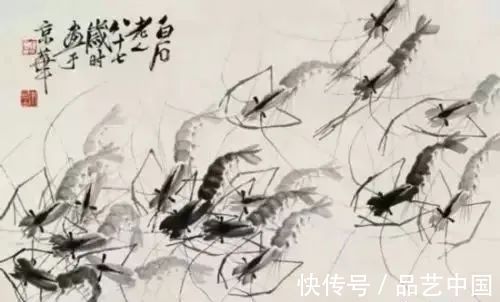 白石
老人
八十七
歲时
画于
京華
快传号 / 品艺中国